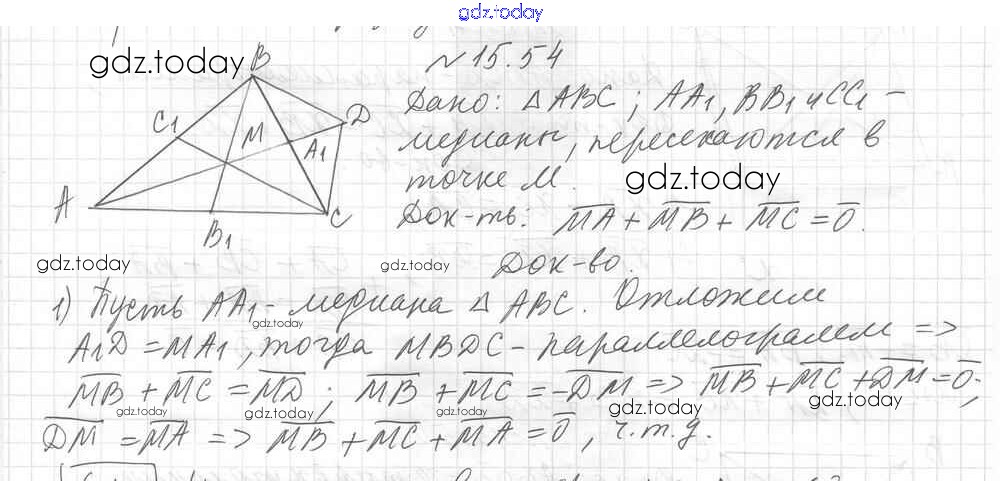 gdz.today
№ 15.54
gdz.today
B
C₁ M D
A₁
A B₁ C
Дано: △ABC; AA₁, BB₁ и CC₁ –
медианы, пересекаются в
точке M.
gdz.today
Док-ть: MA̅ + MB̅ + MC̅ = 0̅.
Док-во.
gdz.today gdz.today
1) Пусть AA₁ - медиана △ ABC. Отложим
gdz.today
A₁D = MA₁, тогда MBDC - параллелограмм =>
MB̅ + MC̅ = MD̅; MB̅ + MC̅ = -DM̅ => MB̅ + MC̅ + DM̅ = 0̅;
gdz.today gdz.today gdz.today gdz.today gdz.today
DM̅ = MA̅ => MB̅ + MC̅ + MA̅ = 0̅, ч.т.д.